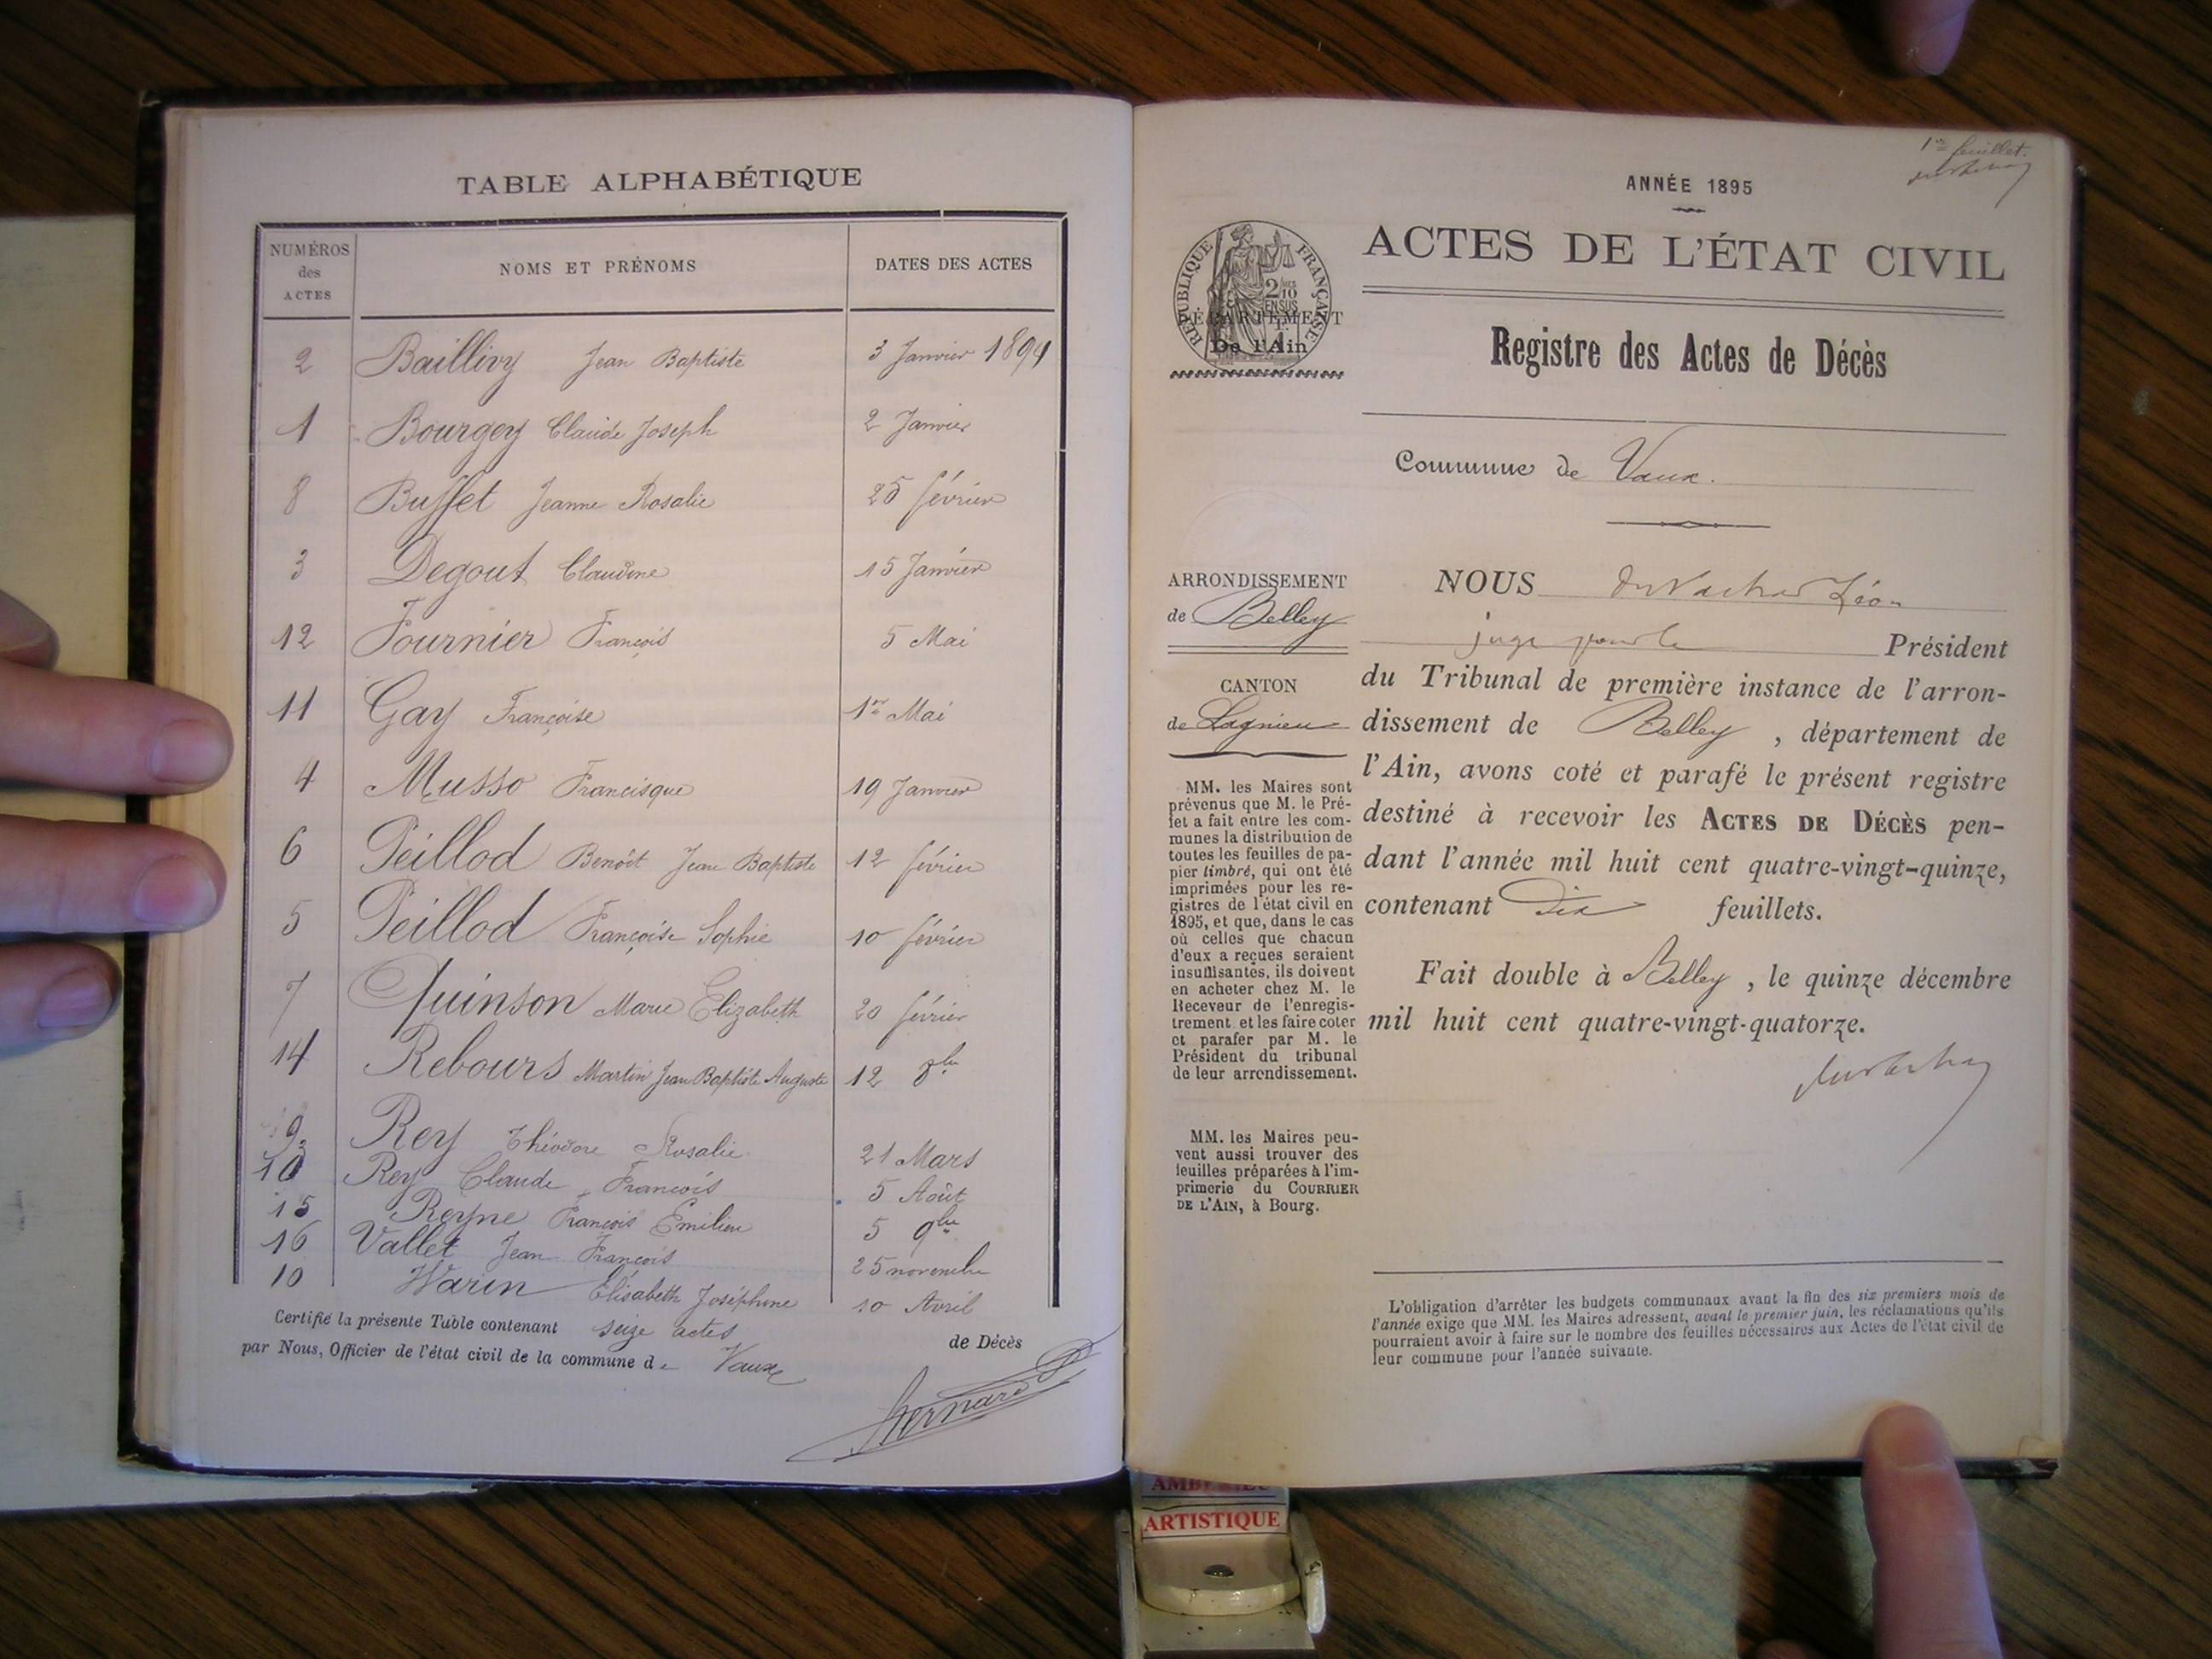 TABLE ALPHABÉTIQUE
NUMÉROS des ACTES
NOMS ET PRÉNOMS
DATES DES ACTES
2 Baillivy Jean Baptiste 3 Janvier 1894
1 Bourgey Claude Joseph 2 Janvier
8 Buffet Jeanne Rosalie 25 février
3 Degout Claudine 15 Janvier
12 Fournier François 5 Mai
11 Gay Françoise 1er Mai
4 Musso Francisque 19 Janvier
6 Peillod Benoît Jean Baptiste 12 février
5 Peillod Françoise Sophie 10 février
7 Quinson Marie Elizabeth 20 février
14 Rebours Martin Jean Baptiste Auguste 12 8bre
9 Rey Théodore Rosalie 21 Mars
Rey Claude François 5 Août
15 Reyne François Emilien 5 9bre
16 Vallet Jean François 25 novembre
10 Warin Elisabeth Joséphine 10 Avril
Certifié la présente Table contenant seize actes de Décès
par Nous, Officier de l'état civil de la commune de Vaux
Bernard
1er feuillet.
ANNÉE 1895
ACTES DE L'ÉTAT CIVIL
RÉPUBLIQUE FRANÇAISE
2/10 EN SUS
DÉPARTEMENT
De l'Ain
Registre des Actes de Décès
Commune de Vaux.
ARRONDISSEMENT
de Belley
CANTON
de Lagnieu
MM. les Maires sont
prévenus que M. le Pré-
fet a fait entre les com-
munes la distribution de
toutes les feuilles de pa-
pier timbré, qui ont été
imprimées pour les re-
gistres de l'état civil en
1895, et que, dans le cas
où celles que chacun
d'eux a reçues seraient
insuffisantes, ils doivent
en acheter chez M. le
Receveur de l'enregis-
trement et les faire coter
et parafer par M. le
Président du tribunal
de leur arrondissement.
MM. les Maires peu-
vent aussi trouver des
feuilles préparées à l'im-
primerie du COURRIER
DE L'AIN, à Bourg.
NOUS Léon
juge pour le Président
du Tribunal de première instance de l'arron-
dissement de Belley , département de
l'Ain, avons coté et parafé le présent registre
destiné à recevoir les ACTES DE DÉCÈS pen-
dant l'année mil huit cent quatre-vingt-quinze,
contenant Dix feuillets.
Fait double à Belley , le quinze décembre
mil huit cent quatre-vingt-quatorze.
L'obligation d'arrêter les budgets communaux avant la fin des six premiers mois de
l'année exige que MM. les Maires adressent, avant le premier juin, les réclamations qu'ils
pourraient avoir à faire sur le nombre des feuilles nécessaires aux Actes de l'état civil de
leur commune pour l'année suivante.
ARTISTIQUE